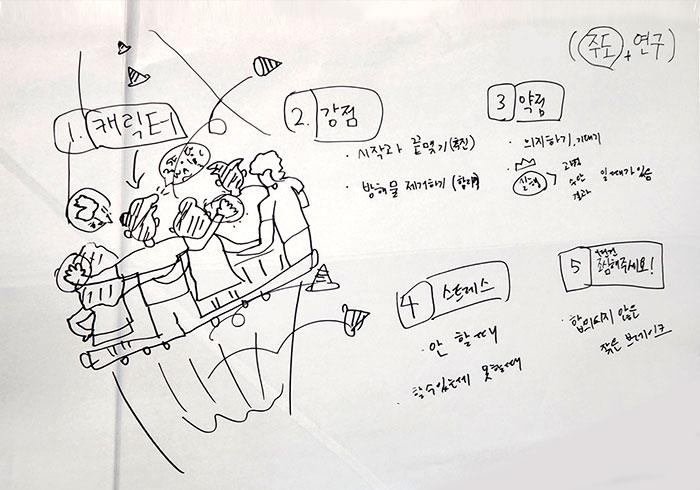 (주도+연구)
1. 캐릭터
2. 강점
· 시작과 끝맺기 (추진)
· 방해물 제거하기
3 약점
· 의지하기, 기대기
· 실행 > 과정 수단 결과 일 때가 있음
4 스트레스
· 안 할 때
· 할수있는데 못할때
5 조심해주세요!
· 합의되지 않은
잦은 브레이크